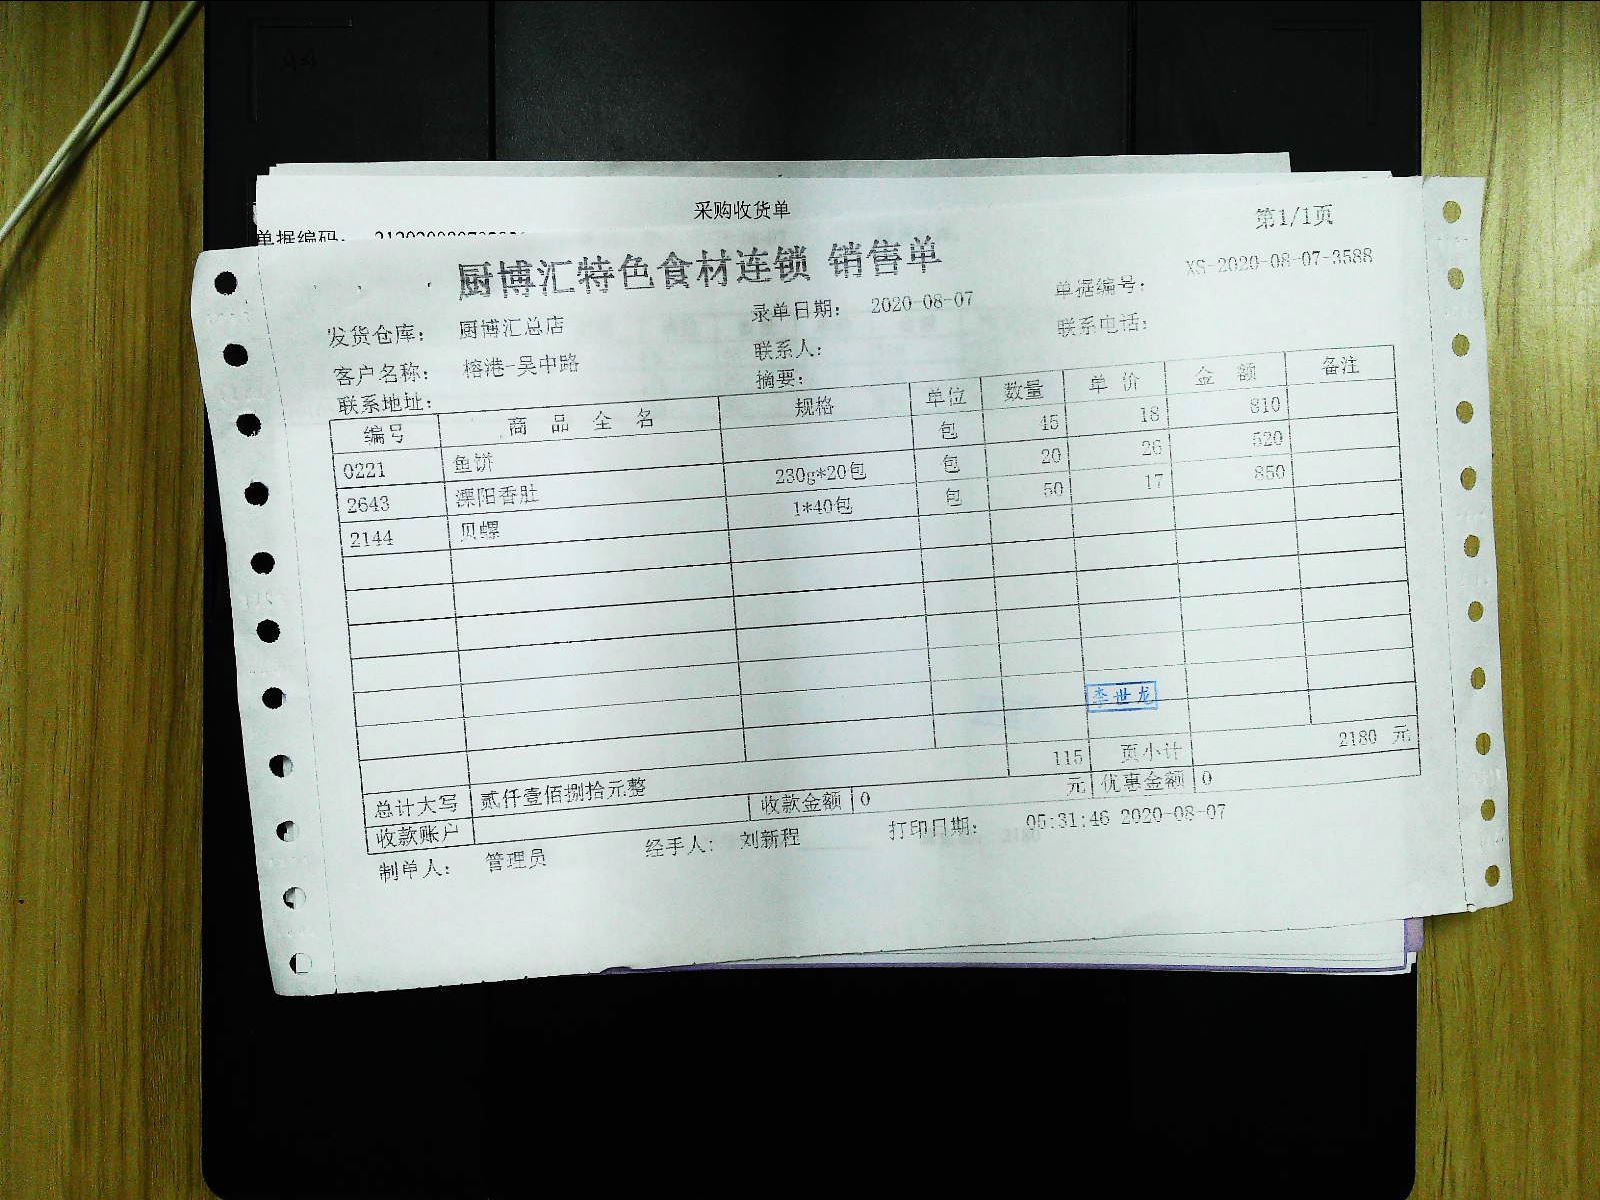 采购收货单
单据编码:
第1/1页
厨博汇特色食材连锁 销售单
XS-2020-08-07-3588
发货仓库: 厨博汇总店 录单日期: 2020-08-07 单据编号:
客户名称: 榕港-吴中路 联系人: 联系电话:
联系地址: 摘要:
编号 商品全名 规格 单位 数量 单价 金额 备注
0221 鱼饼 包 45 18 810
2643 溧阳香肚 230g*20包 包 20 26 520
2144 贝螺 1*40包 包 50 17 850
李世龙
115 页小计 2180 元
总计大写 贰仟壹佰捌拾元整 收款金额 0 元 优惠金额 0
收款账户
制单人: 管理员 经手人: 刘新程 打印日期: 05:31:46 2020-08-07